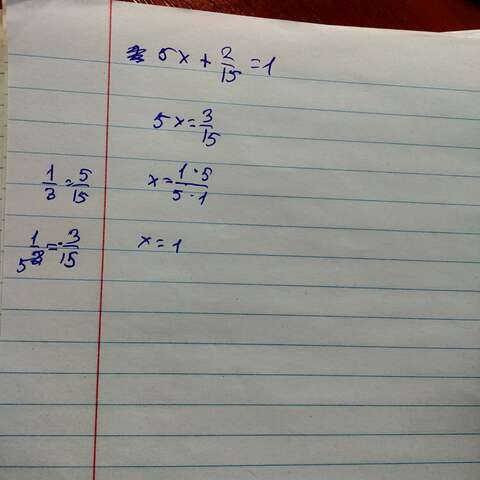 5x + 2/15 = 1
5x = 3/15
1/3 = 5/15
x = 1·5/5·1
1/5 = 3/15
x = 1